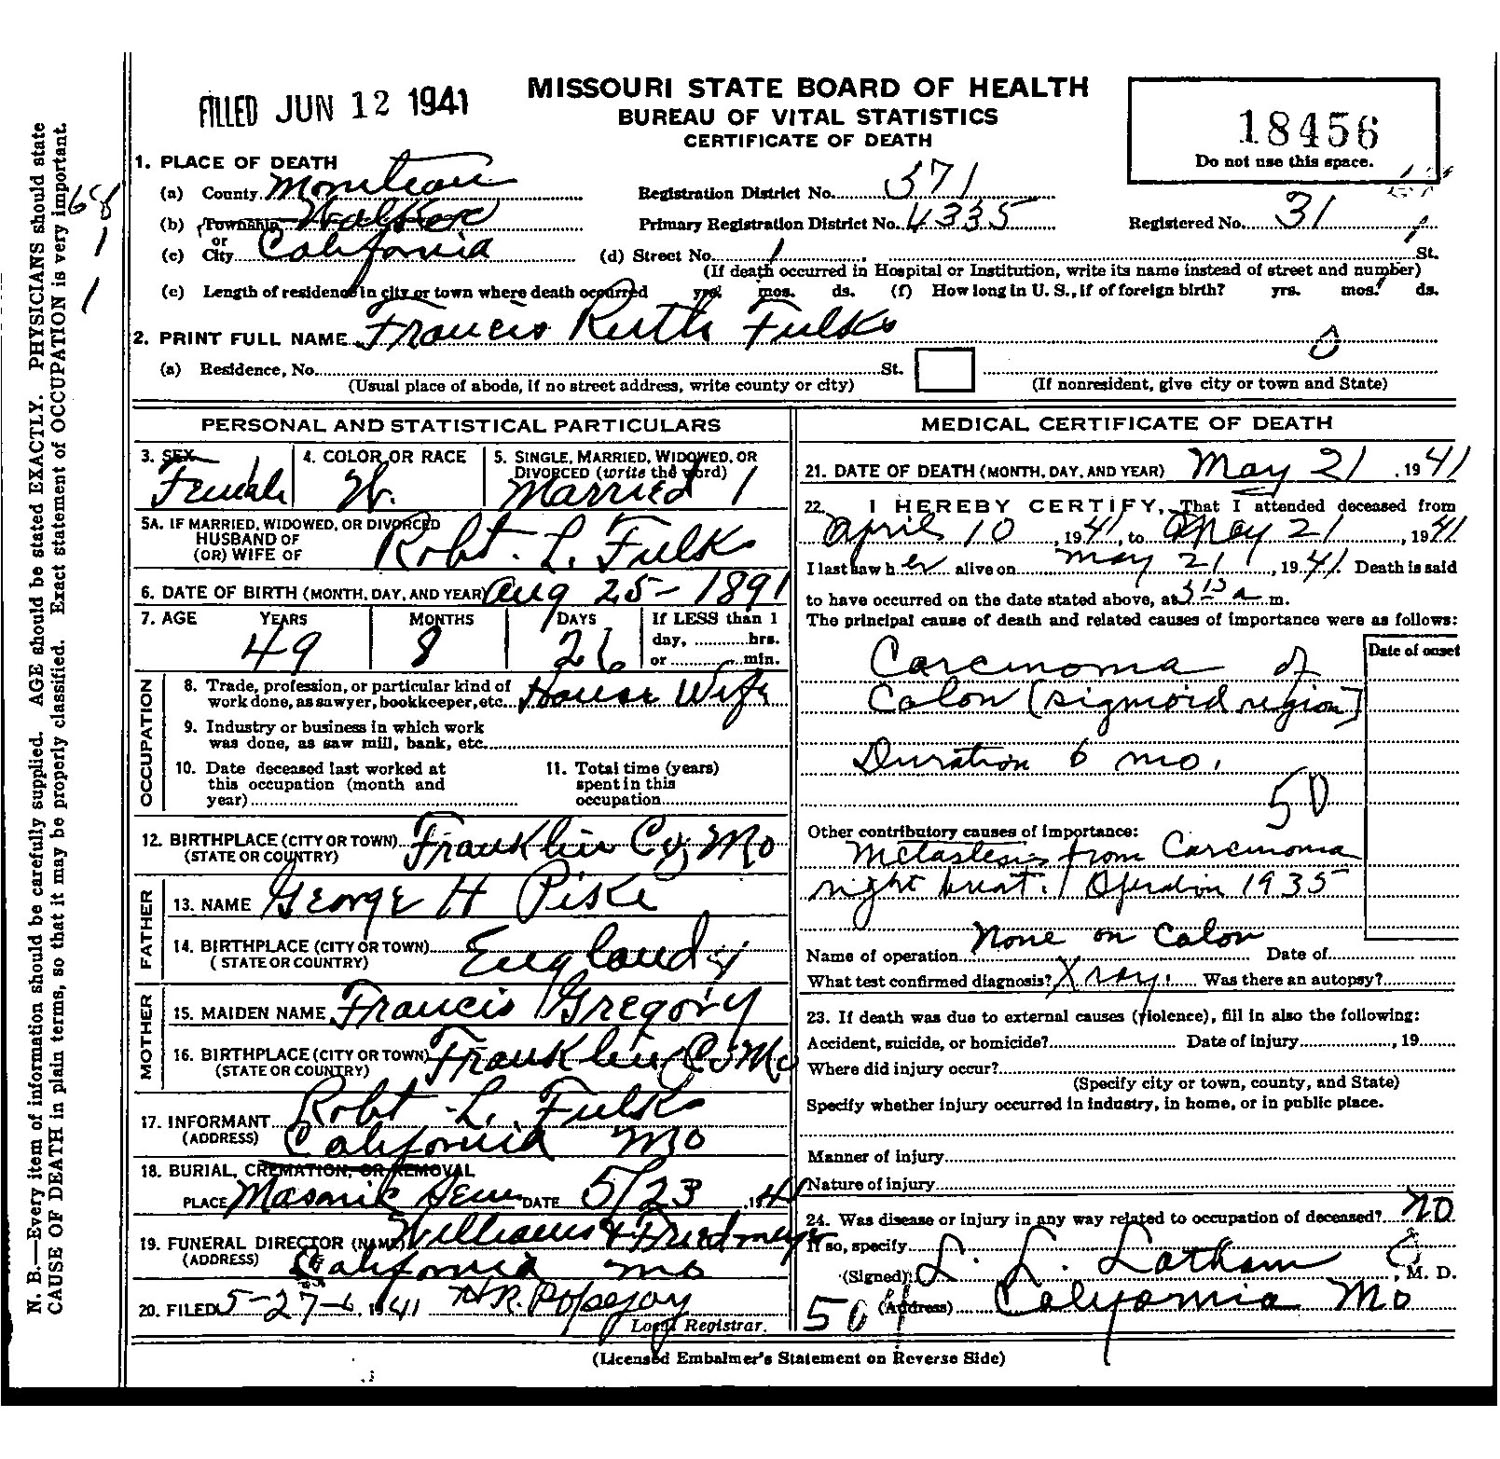 FILED JUN 12 1941
MISSOURI STATE BOARD OF HEALTH
BUREAU OF VITAL STATISTICS
CERTIFICATE OF DEATH
18456
Do not use this space.
1. PLACE OF DEATH
(a) County Moniteau
Registration District No. 571
(b) Township Walker
Primary Registration District No. 4335
Registered No. 31
or
(c) City California
(d) Street No. St.
(If death occurred in Hospital or Institution, write its name instead of street and number)
(e) Length of residence in city or town where death occurred yrs. mos. ds. (f) How long in U. S., if of foreign birth? yrs. mos. ds.
2. PRINT FULL NAME Francis Ruth Fulks
(a) Residence, No. St.
(Usual place of abode, if no street address, write county or city) (If nonresident, give city or town and State)
PERSONAL AND STATISTICAL PARTICULARS
3. SEX Female
4. COLOR OR RACE W.
5. SINGLE, MARRIED, WIDOWED, OR
DIVORCED (write the word)
Married 1
5A. IF MARRIED, WIDOWED, OR DIVORCED
HUSBAND OF
(OR) WIFE OF Robt. L. Fulks
6. DATE OF BIRTH (MONTH, DAY, AND YEAR) Aug 25-1891
7. AGE YEARS MONTHS DAYS If LESS than 1
day, hrs.
49 8 26 or min.
OCCUPATION
8. Trade, profession, or particular kind of
work done, as sawyer, bookkeeper, etc. House Wife
9. Industry or business in which work
was done, as saw mill, bank, etc.
10. Date deceased last worked at
this occupation (month and
year)
11. Total time (years)
spent in this
occupation
12. BIRTHPLACE (CITY OR TOWN) Franklin Co, Mo
(STATE OR COUNTRY)
FATHER
13. NAME George H Piske
14. BIRTHPLACE (CITY OR TOWN) England
(STATE OR COUNTRY)
MOTHER
15. MAIDEN NAME Francis Gregory
16. BIRTHPLACE (CITY OR TOWN) Franklin Co Mo
(STATE OR COUNTRY)
17. INFORMANT Robt. L. Fulks
(ADDRESS) California Mo
18. BURIAL, CREMATION, OR REMOVAL
PLACE Masonic Cem DATE 5/23, 1941
19. FUNERAL DIRECTOR (NAME) Williams & Friedmeyer
(ADDRESS) California Mo
20. FILED 5-27-, 1941 H.R. Popejoy
Local Registrar.
MEDICAL CERTIFICATE OF DEATH
21. DATE OF DEATH (MONTH, DAY, AND YEAR) May 21, 1941
22. I HEREBY CERTIFY, That I attended deceased from
April 10, 1941, to May 21, 1941
I last saw her alive on May 21, 1941. Death is said
to have occurred on the date stated above, at 3 15 a m.
The principal cause of death and related causes of importance were as follows:
Date of onset
Carcinoma of
Colon (sigmoid region)
Duration 6 mo.
50
Other contributory causes of importance:
Metastesis from Carcinoma
right breast. / Operation 1935
Name of operation None on Colon Date of
What test confirmed diagnosis? Xray. Was there an autopsy?
23. If death was due to external causes (violence), fill in also the following:
Accident, suicide, or homicide? Date of injury, 19
Where did injury occur?
(Specify city or town, county, and State)
Specify whether injury occurred in industry, in home, or in public place.
Manner of injury
Nature of injury
24. Was disease or injury in any way related to occupation of deceased? NO
If so, specify
(Signed) L. L. Latham, M. D.
504 (Address) California Mo
(Licensed Embalmer's Statement on Reverse Side)
N. B.—Every item of information should be carefully supplied. AGE should be stated EXACTLY. PHYSICIANS should state
CAUSE OF DEATH in plain terms, so that it may be properly classified. Exact statement of OCCUPATION is very important.